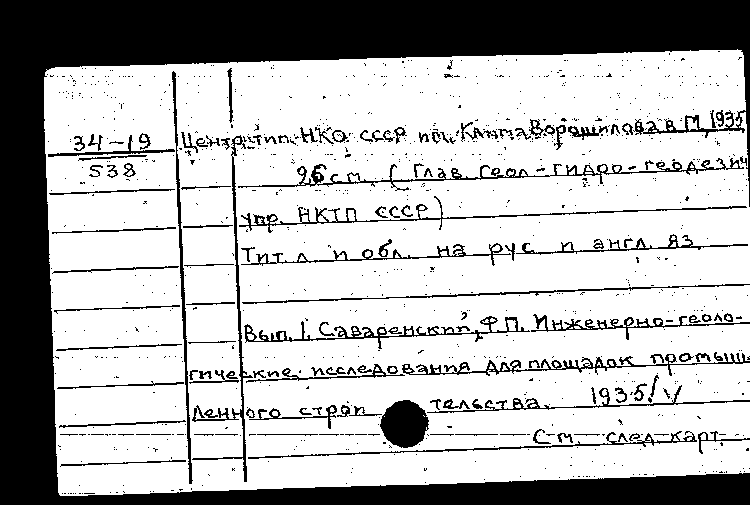 34-19
538
Центр. тип. НКО СССР им. Клима Ворошилова в М. 1935
26 см. (Глав. геол-гидро-геодезич
упр. НКТП СССР)
Тит. л. и обл. на рус и англ. яз.
Вып. 1. Саваренский, Ф.П. Инженерно-геоло-
гические исследования для площадок промыш
ленного строительства. 1935/V
См. след. карт.